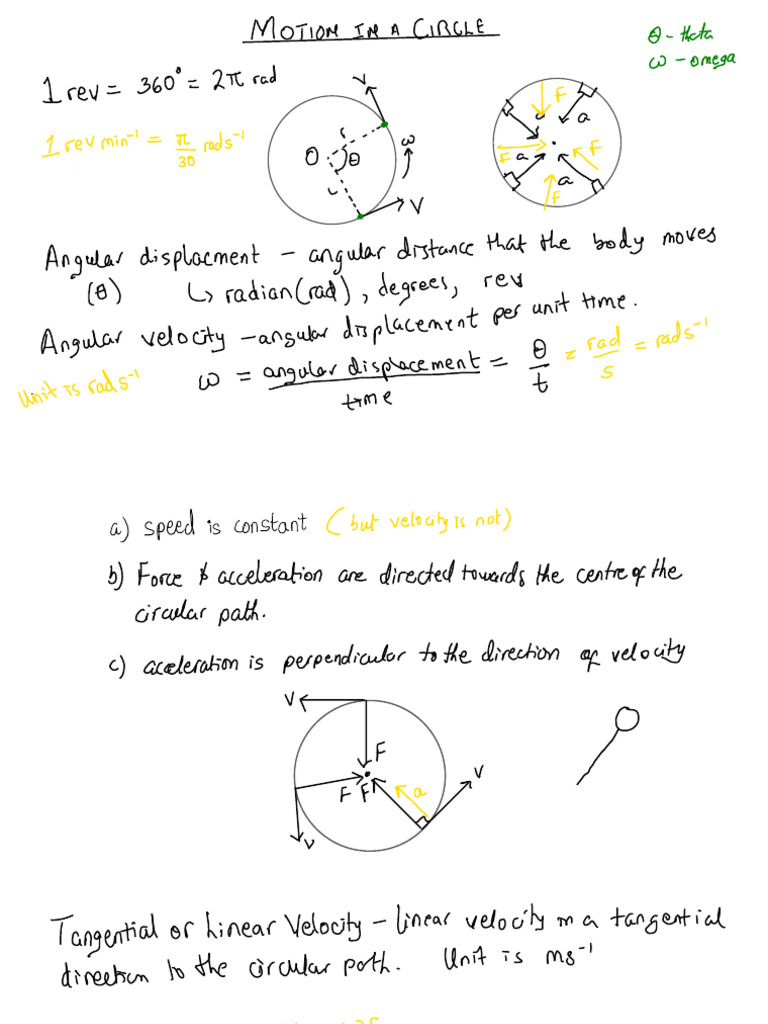 MOTION IN A CIRCLE
θ - theta
ω - omega
1 rev = 360° = 2π rad
1 rev min⁻¹ = π/30 rads⁻¹
V
r
O θ
ω
r
V
F
a
a
F a
F
a
F
Angular displacment - angular distance that the body moves
(θ) ↳ radian(rad), degrees, rev
Angular velocity - angular displacement per unit time.
Unit is rads⁻¹ ω = angular displacement/time = θ/t = rad/s = rads⁻¹
a) speed is constant (but velocity is not)
b) Force & acceleration are directed towards the centre of the
circular path.
c) acceleration is perpendicular to the direction of velocity
V
F
F F
a
V
V
Tangential or Linear Velocity - linear velocity in a tangential
direction to the circular path. Unit is ms⁻¹